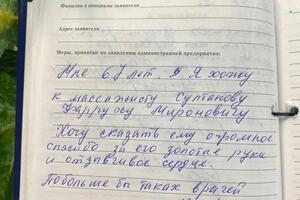 Фамилия и инициалы заявителя
Адрес заявителя
Меры, принятые по заявлению администрацией предприятия:
Мне 67 лет. Я хожу
к массажисту Султанову
Фарруху Мироновичу
Хочу сказать ему огромное
спасибо за его золотые руки
и отзывчивое сердце.
Побольше бы таких врачей